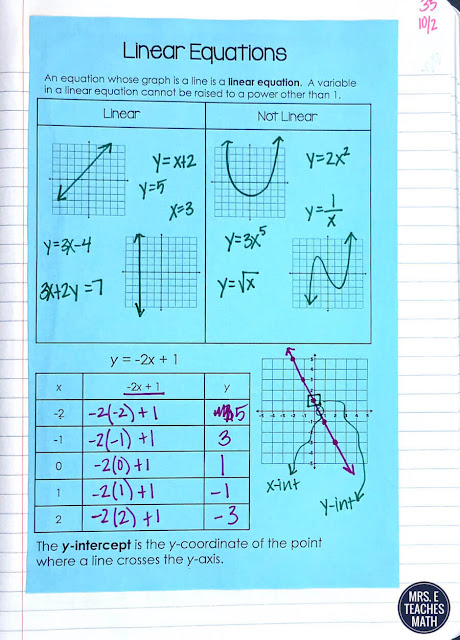 35
10/2
Linear Equations
An equation whose graph is a line is a linear equation. A variable
in a linear equation cannot be raised to a power other than 1.
Linear
Not Linear
y=x+2
y=5
x=3
y=3x-4
3x+2y=7
y=2x²
y=1/x
y=3x⁵
y=√x
y = -2x + 1
x -2x + 1 y
-2 -2(-2)+1 5
-1 -2(-1)+1 3
0 -2(0)+1 1
1 -2(1)+1 -1
2 -2(2)+1 -3
x-int
y-int
The y-intercept is the y-coordinate of the point
where a line crosses the y-axis.
MRS. E
TEACHES
MATH